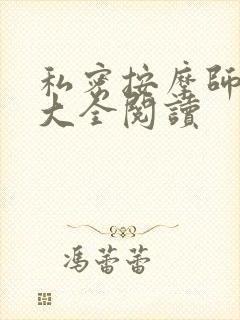 私密按摩師
大全閱讀
馮蕾蕾